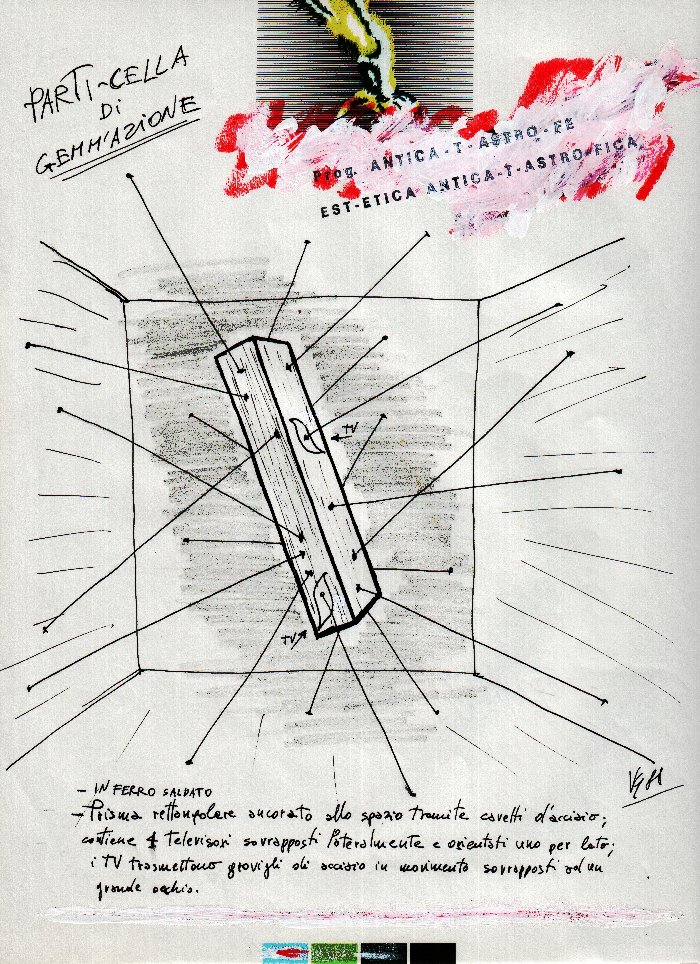 PARTI-CELLA
DI
GEMM'AZIONE
Prog. ANTICA-T-ASTRO-FE
EST-ETICA ANTICA-T-ASTRO-FICA
TV
TV
- IN FERRO SALDATO
- Prisma rettangolare ancorato allo spazio tramite cavetti d'acciaio;
contiene 4 Televisori sovrapposti lateralmente e orientati uno per lato;
i TV trasmettono grovigli di acciaio in movimento sovrapposti ad un
grande occhio.